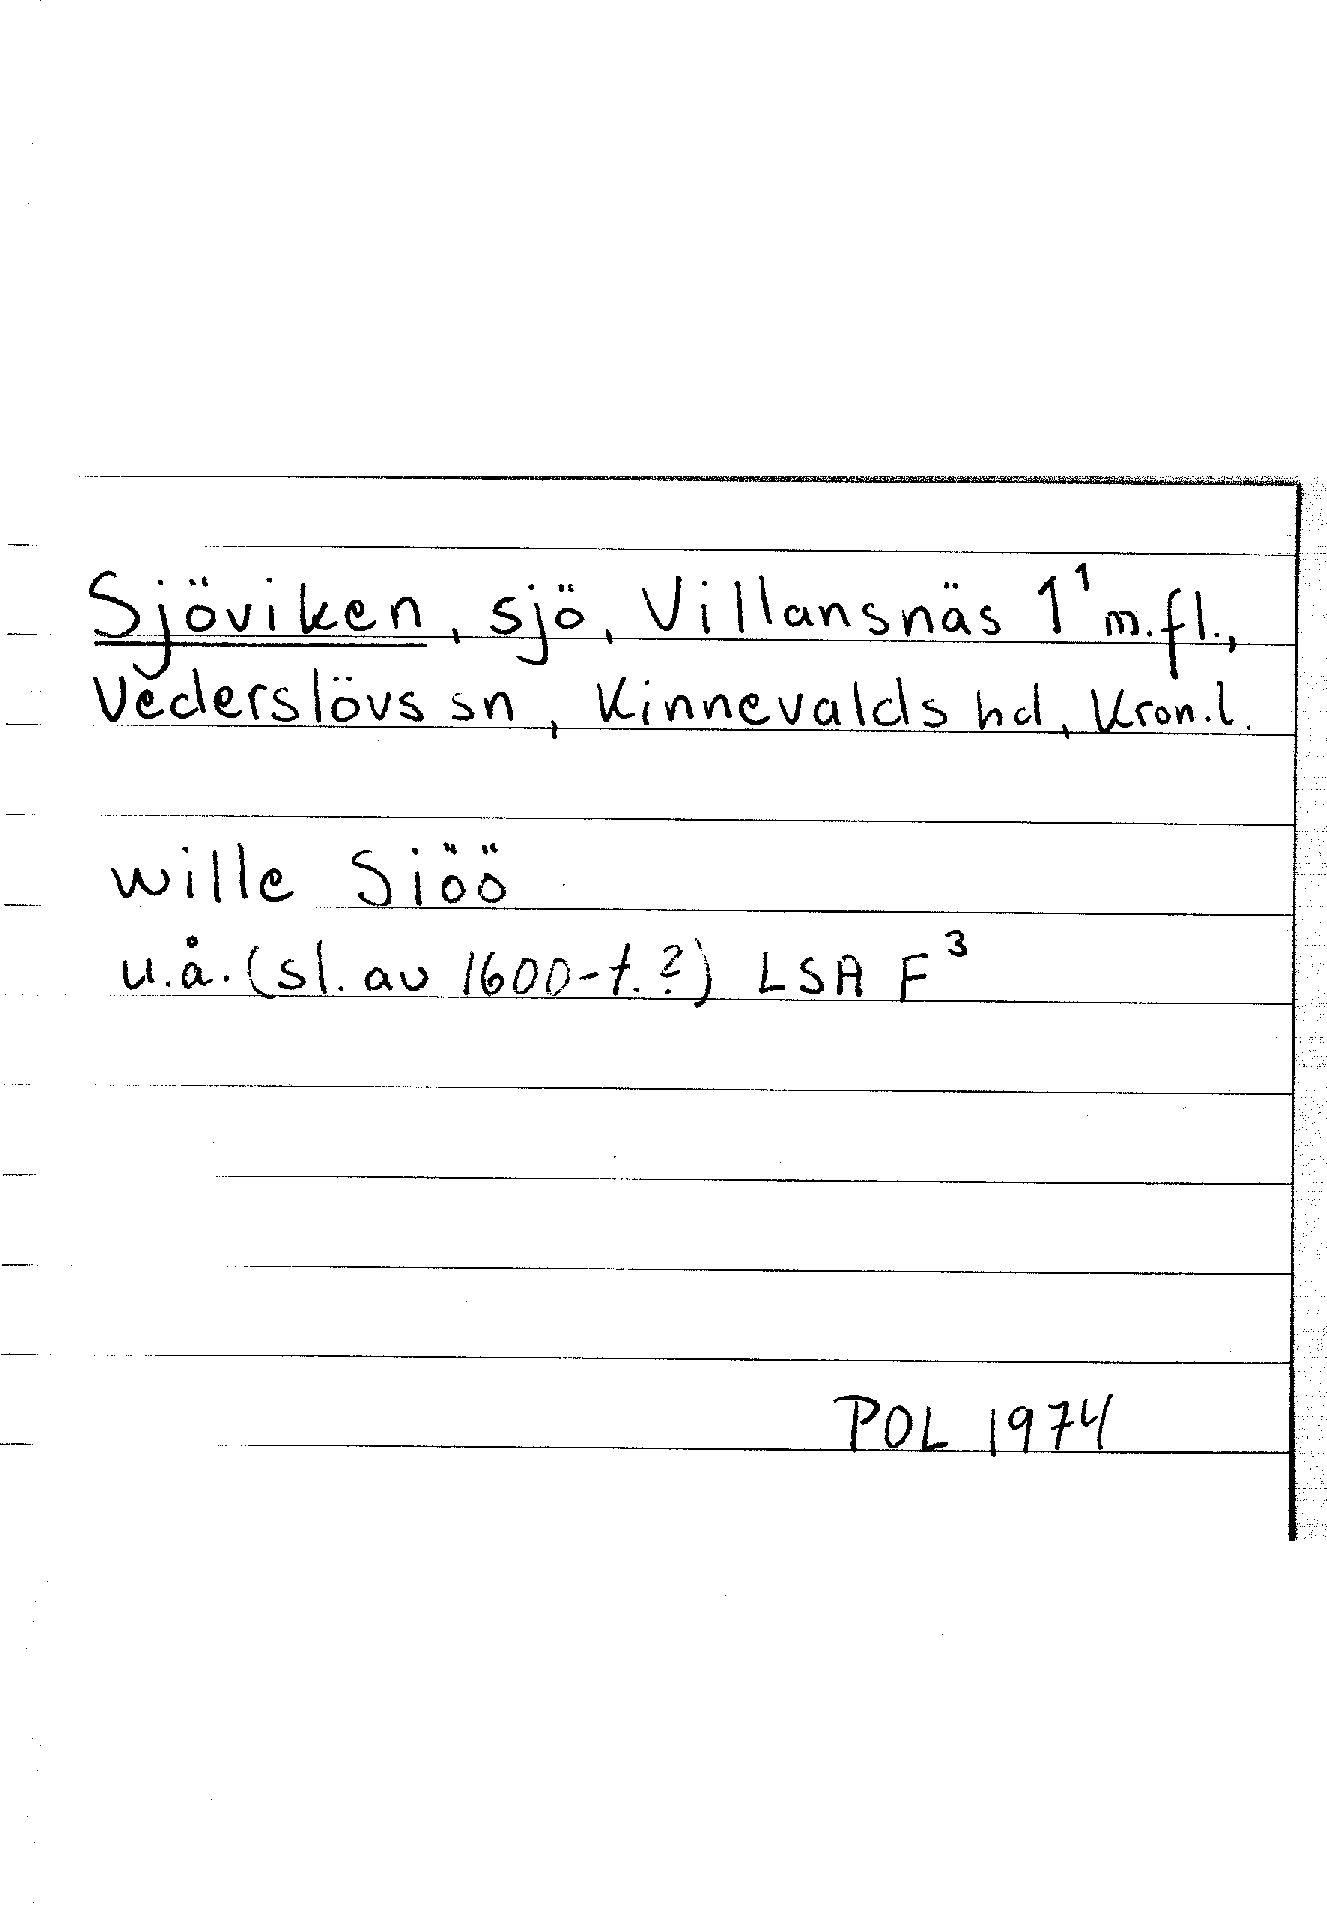 Sjöviken, sjö, Villansnäs 1¹ m.fl.,
Vederslövs sn, Kinnevalds hd, Kron.l.
wille Siöö
u.å. (sl. av 1600-t.?) LSA F³
POL 1974